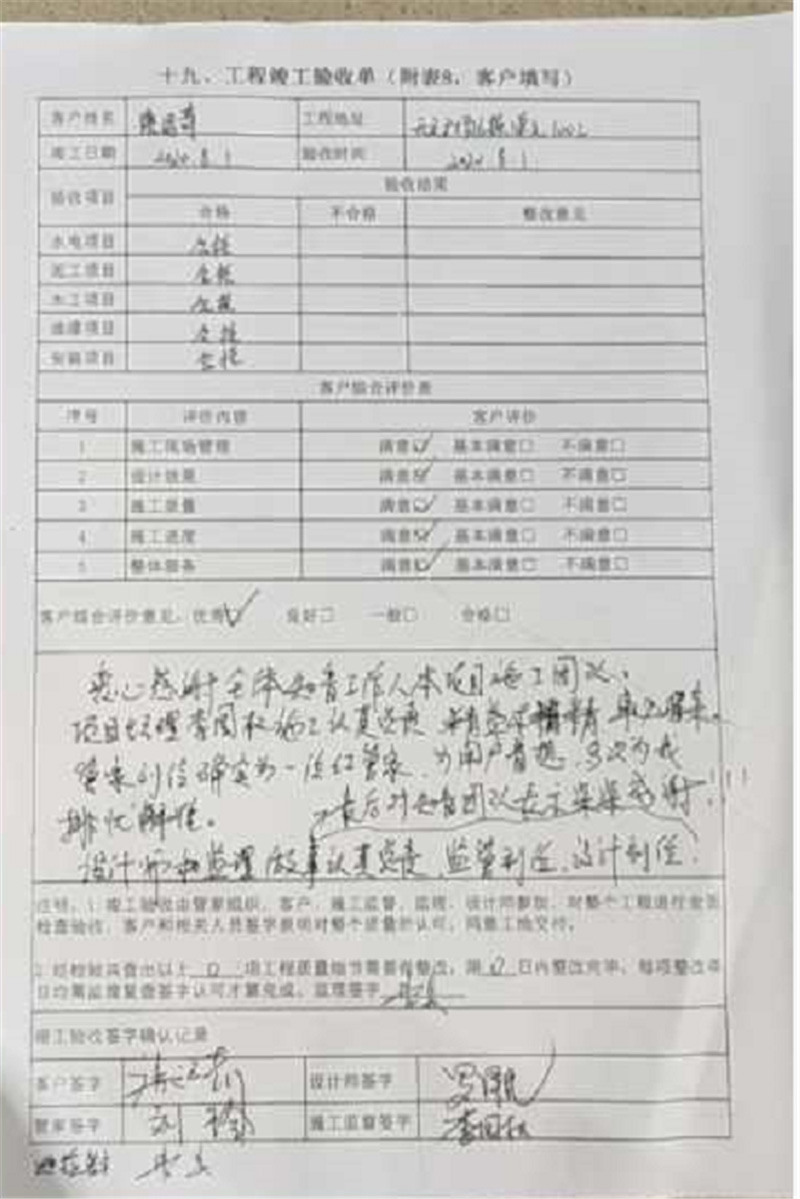 十九、工程竣工验收单（附表8，客户填写）
客户姓名 工程地址 1002
竣工日期 2020.8.1 验收时间 2020.8.1
验收项目 验收结果
合格 不合格 整改意见
水电项目 合格
泥工项目 合格
木工项目 合格
油漆项目 合格
安装项目 合格
客户综合评价表
序号 评价内容 客户评价
1 施工现场管理 满意☑ 基本满意□ 不满意□
2 设计效果 满意☑ 基本满意□ 不满意□
3 施工质量 满意☑ 基本满意□ 不满意□
4 施工进度 满意☑ 基本满意□ 不满意□
5 整体服务 满意☑ 基本满意□ 不满意□
客户综合评价意见：优秀☑ 良好□ 一般□ 合格□
衷心感谢全体知音工作人本项目施工团队、
项目经理李国权施工认真负责
管家刘 确实为一位红管家、为用户着想、多次为我
排忧解难。 最后对知音团队表示深深感谢！！！
设计师和监理做事认真负责、监管到位、设计到位！
注明：1.竣工验收由管家组织，客户、施工监督、监理、设计师参加，对整个工程进行全面
检查验收，客户和相关人员签字表明对整个质量的认可，同意工地交付。
2.经检验调查出以上 0 项工程质量细节需要在整改，限 0 日内整改完毕，每项整改项
目均需监理复查签字认可才算完成。监理签字
竣工验收签字确认记录
客户签字 设计师签字
管家签字 刘 施工监督签字 李国权